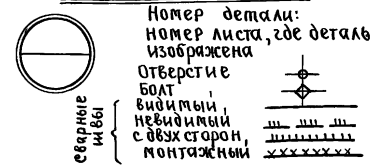 Номер детали:
номер листа, где деталь
изображена
Отверстие
Болт
Сварные
швы
видимый,
невидимый
с двух сторон,
монтажный